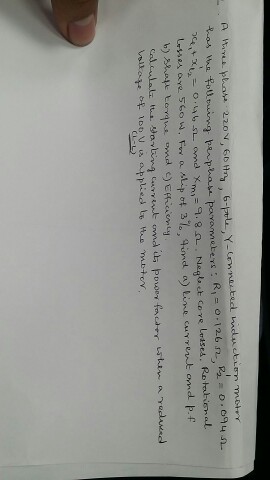 A three phase 220V, 60Hz, 6-pole, Y-connected induction motor
has the following per phase parameters: R1 = 0.126 Ω, R2' = 0.094 Ω
X1 + X2 = 0.46 Ω and Xm = 9.8 Ω. Neglect core losses. Rotational
losses are 560 W. For a slip of 3%, find a) line current and p.f
b) shaft torque and c) Efficiency
Calculate the starting current and its power factor when a reduced
voltage of 100 V (L-L) is applied to the motor.